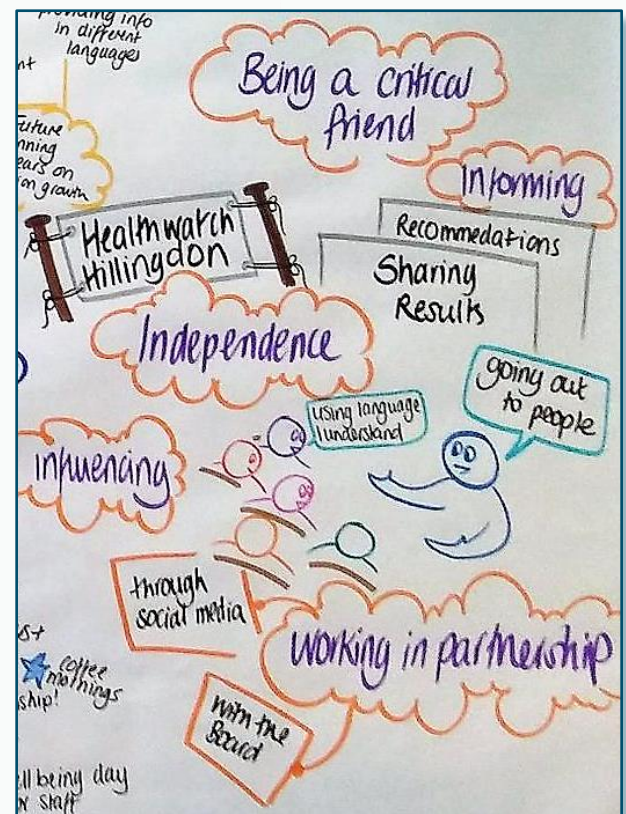 providing info
in different
languages
Being a critical
friend
Future
Informing
Healthwatch
Hillingdon
Recommedations
Sharing
Results
Independence
going out
to people
using language
I understand
influencing
through
social media
working in partnership
coffee
mornings
with the
Board
being day
staff